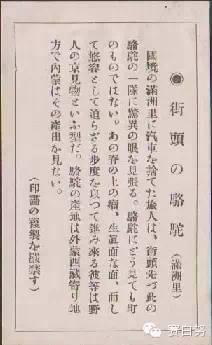 ◉街頭の駱駝（滿洲里）
國境の滿洲里に汽車を捨てた旅人は、街頭先づ此の
駱駝の一隊に驚異の眼を見張る。駱駝はどう見ても町
のものではない。あの脊の上の瘤、生眞面な面、而し
て悠容として迫らざる歩度を以つて進み來る彼等は野
人の京見物といふ型だ。駱駝の產地は外蒙西藏寄り地
方で內蒙はその產出を見ない。
（印畵の複製を嚴禁す）